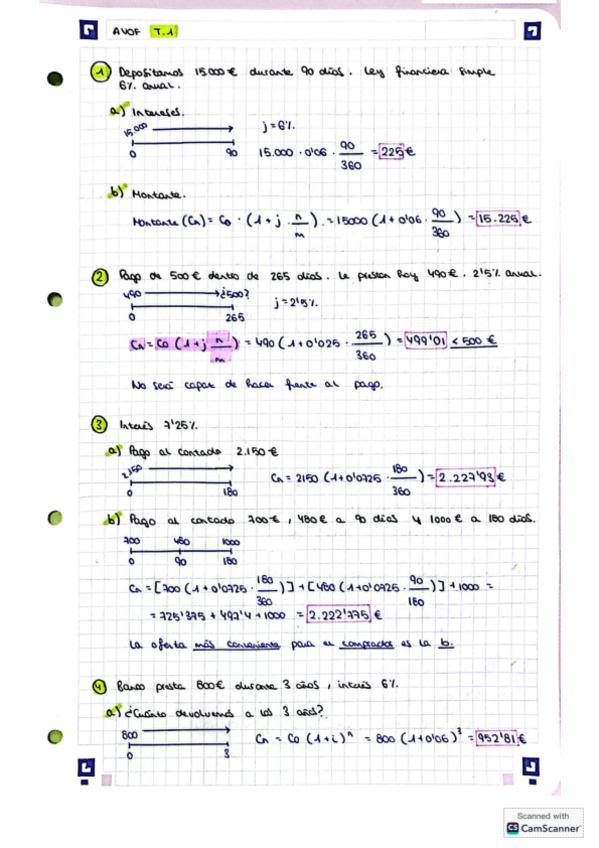 AVOF T.1
1 Depositamos 15.000€ durante 90 días. Ley financiera simple
6% anual.
a) Intereses.
15.000 j=6%
0 90 15.000 · 0'06 · 90/360 = 225€
b) Montante.
Montante (Cn) = Co · (1 + j · n/m) = 15000 (1+0'06 · 90/360) = 15.225€
2 Pago de 500€ dentro de 265 días. Le prestan hoy 490€. 2'5% anual.
490 ¿500? j=2'5%
0 265
Cn = Co (1+j n/m) = 490 (1+0'025 · 265/360) = 499'01 < 500 €
No será capaz de hacer frente al pago.
3 Interés 7'25%
a) Pago al contado 2.150€
2.150 Cn = 2150 (1+0'0725 · 180/360) = 2.227'93€
0 180
b) Pago al contado 700€, 480€ a 90 días y 1000€ a 180 días.
700 480 1000
0 90 180
Cn = [700 (1+0'0725 · 180/360)] + [480 (1+0'0725 · 90/180)] + 1000 =
= 725'375 + 497'4 + 1000 = 2.222'775 €
La oferta más conveniente para el comprador es la b.
4 Banco presta 800€ durante 3 años, interés 6%.
a) ¿Cuánto devolvemos a los 3 años?
800 Cn = Co (1+i)^n = 800 (1+0'06)^3 = 952'81€
0 3
Scanned with
CS CamScanner